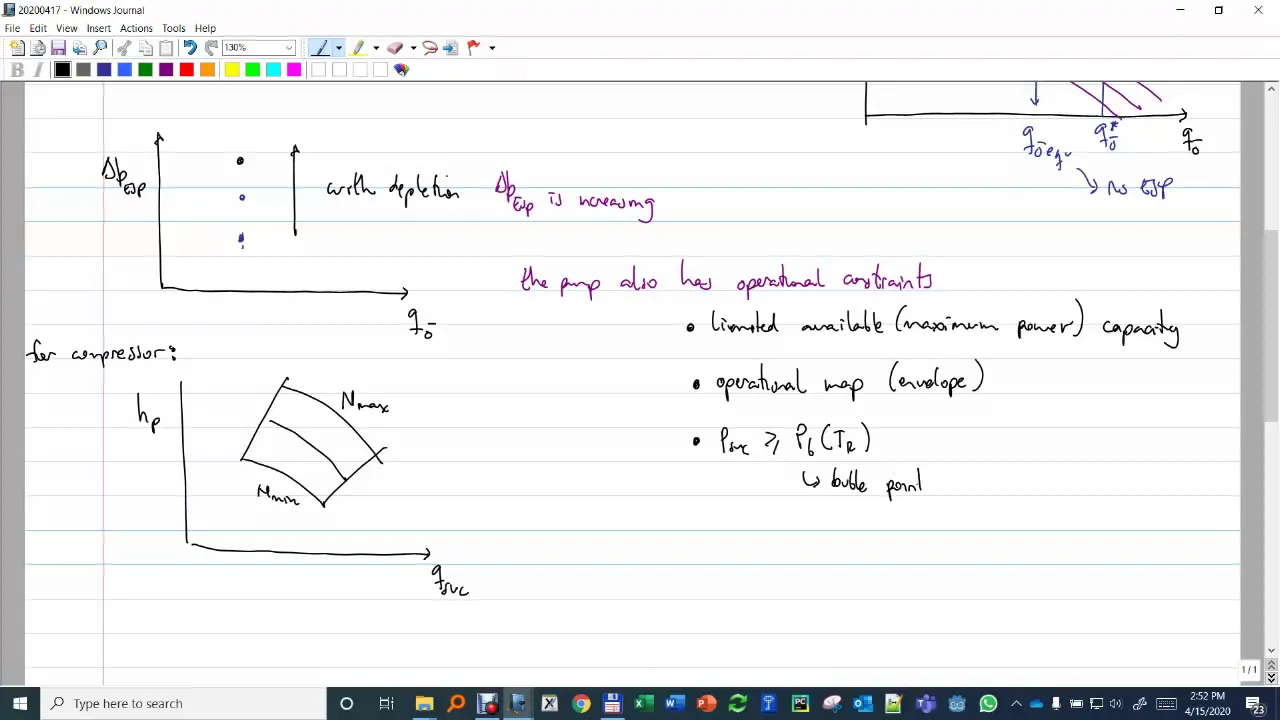 20200417 - Windows Journal
File Edit View Insert Actions Tools Help
130%
B I
q_ō equ
q_ō*
q_ō
→ no ESP
Δp_ESP
with depletion Δp_ESP is increasing
q_ō
the pump also has operational constraints
• limited available (maximum power) capacity
• operational map (envelope)
• P_suc ≥ P_b (T_R)
↳ buble point
for compressor:
h_p
N_max
N_min
q_suc
1/1
Type here to search
2:52 PM
4/15/2020
23